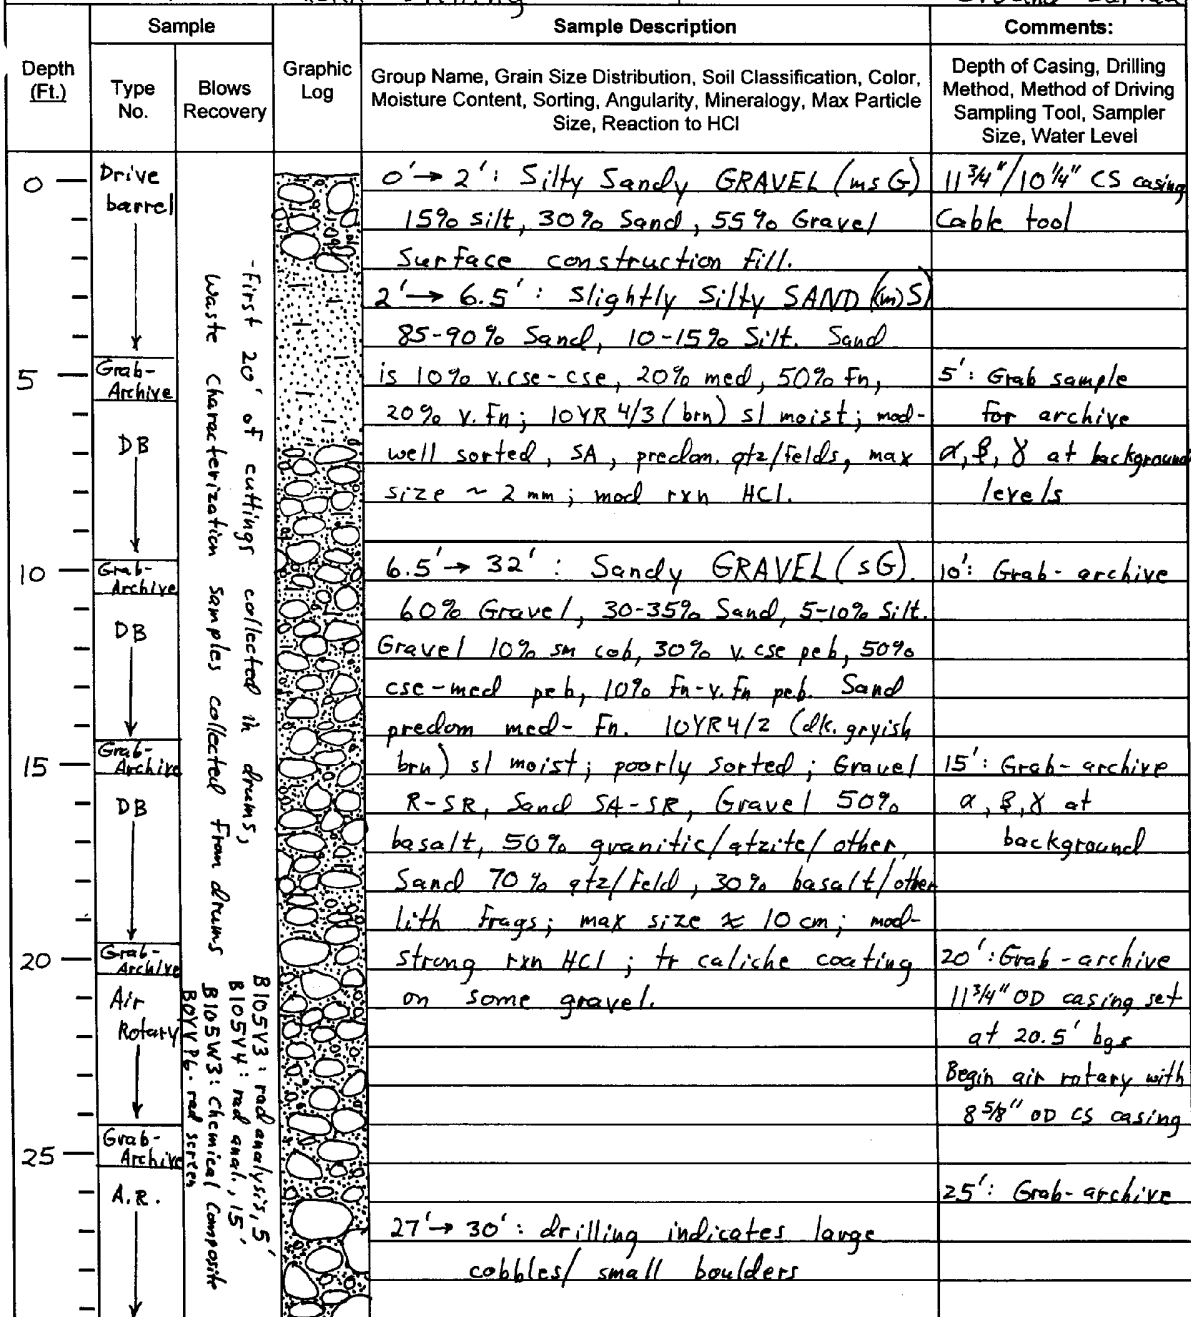 Sample
Sample Description
Comments:
Depth
(Ft.)
Type
No.
Blows
Recovery
Graphic
Log
Group Name, Grain Size Distribution, Soil Classification, Color,
Moisture Content, Sorting, Angularity, Mineralogy, Max Particle
Size, Reaction to HCl
Depth of Casing, Drilling
Method, Method of Driving
Sampling Tool, Sampler
Size, Water Level
0
5
10
15
20
25
Drive
barrel
Grab-
Archive
DB
Grab-
Archive
DB
Grab-
Archive
DB
Grab-
Archive
Air
Rotary
Grab-
Archive
A.R.
-First 20' of cuttings collected in drums,
waste characterization samples collected from drums
B105V3: rad analysis, 5'
B105V4: rad anal., 15'
B105W3: Chemical Composite
B0YVP6- rad screen
0'→ 2': Silty Sandy GRAVEL (msG)
15% silt, 30% Sand, 55% Gravel
Surface construction fill.
2'→ 6.5': Slightly Silty SAND (m)S)
85-90% Sand, 10-15% Silt. Sand
is 10% v.cse-cse, 20% med, 50% fn,
20% v.fn; 10YR 4/3 (brn) sl moist; mod-
well sorted, SA, predom. qtz/felds, max
size ~ 2 mm; mod rxn HCl.
6.5'→ 32': Sandy GRAVEL (sG).
60% Gravel, 30-35% Sand, 5-10% Silt.
Gravel 10% sm cob, 30% v. cse peb, 50%
cse-med peb, 10% fn-v.fn peb. Sand
predom med- fn. 10YR4/2 (dk. gryish
brn) sl moist; poorly sorted; Gravel
R-SR, Sand SA-SR, Gravel 50%
basalt, 50% granitic/qtzite/other,
Sand 70% qtz/feld, 30% basalt/other
lith frags; max size ≈ 10 cm; mod-
strong rxn HCl; tr caliche coating
on some gravel.
27'→ 30': drilling indicates large
cobbles/ small boulders
11 3/4"/10 1/4" CS casing
Cable tool
5': Grab sample
for archive
α, β, γ at background
levels
10': Grab- archive
15': Grab- archive
α, β, γ at
background
20': Grab - archive
11 3/4" OD casing set
at 20.5' bgs
Begin air rotary with
8 5/8" OD CS casing
25': Grab- archive